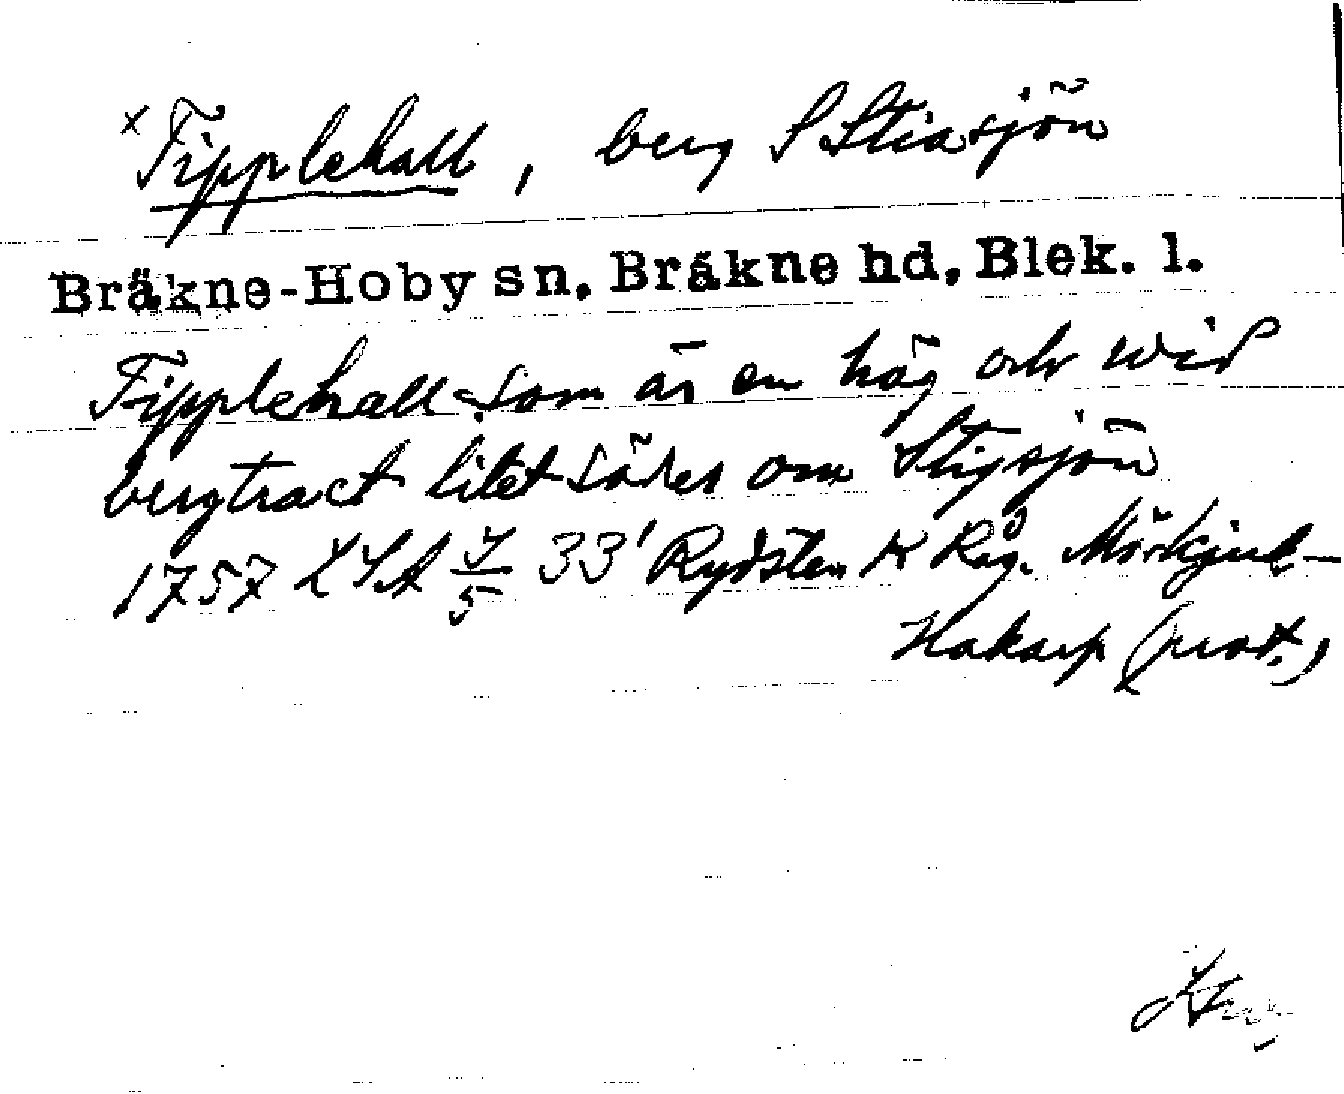 x Fipplehall, berg S Stiasjön
Bräkne-Hoby sn, Bräkne hd, Blek. l.
Fipplehall som är en hög och wid
bergtract litet söder om Stigsjön
1757 LSA 7/5 33' Rydsten K Råg. Mörkjul-
Hakarp (prot.)